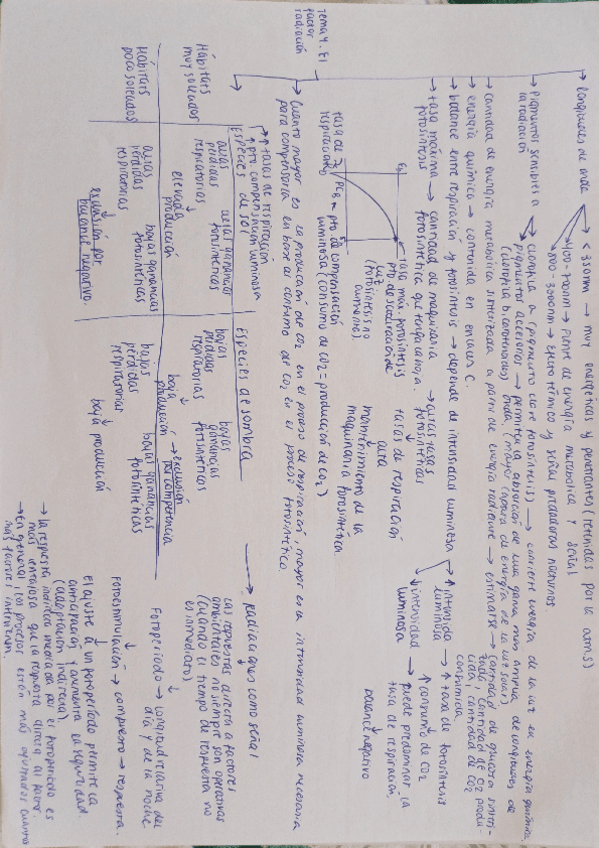 Tema 4. El
factor
radiación
→ Longitudes de onda
→ < 330nm → muy energéticas y penetrantes (retenidas por la atms)
→ 400-700nm → fuente de energía metabólica y señal
→ 800-3000nm → efecto térmico y señal depredadores nocturnos
→ Pigmentos sensibles a
la radiación
→ clorofila a (pigmento clave fotosíntesis) → convierte energía de la luz en energía química.
→ pigmentos accesorios → permiten la absorción de una gama más amplia de longitudes de
(clorofila b, carotenos) onda (mayor captura de energía de la luz solar)
→ cantidad de energía metabólica interiorizada a partir de energía radiante → estimarse → cantidad de glucosa sinteti-
zada, cantidad de O2 produ-
cida, cantidad de CO2
consumida.
→ energía química → contenida en enlaces C.
→ balance entre respiración y fotosíntesis → depende de intensidad luminosa
→ ↑ intensidad
luminosa
→ ↑ tasa de fotosíntesis
↑ consumo de CO2
→ ↓ intensidad
luminosa
→ puede predominar la
tasa de respiración.
balance negativo
→ tasa máxima
fotosíntesis
→ cantidad de maquinaria
fotosintética que tenga la hoja.
→ altas tasas
fotosintéticas
tasas de respiración
alta
mantenimiento de la
maquinaria fotosintética
tasa máx. fotosíntesis
pto de saturación
(fotosíntesis no
aumenta)
tasa de
respiración
PCL = pto de compensación
luminosa (consumo de CO2 = producción de CO2)
→ Cuanto mayor es la producción de CO2 en el proceso de respiración, mayor es la intensidad luminosa necesaria
para compensarla en base al consumo de CO2 en el proceso fotosintético.
↑ tasas de respiración
↑ pto compensación luminosa
Especies de sol
Especies de sombra
Hábitats
muy soleados
altas
pérdidas
respiratorias
altas ganancias
fotosintéticas
elevada
producción
bajas
pérdidas
respiratorias
bajas
ganancias
fotosintéticas
baja
producción → exclusión
por competencia
Hábitats
poco soleados
altas
pérdidas
respiratorias
bajas ganancias
fotosintéticas
exclusión por
balance negativo.
bajas
pérdidas
respiratorias
bajas ganancias
fotosintéticas
baja producción
→ Radiaciones como señal
Las respuestas directas a factores
ambientales no siempre son operativas
(cuando el tiempo de respuesta no
es inmediato)
Fotoperíodo → longitud relativa del
día y de la noche
Fotoestimulación → compuesto → respuesta.
El ajuste a un fotoperíodo permite la
anticipación y aumenta la seguridad
(adaptación indirecta).
→ La respuesta indirecta mediada por el fotoperíodo es
más ventajosa que la respuesta directa al factor.
→ En general, los procesos están más ajustados cuanto
más factores intervengan.